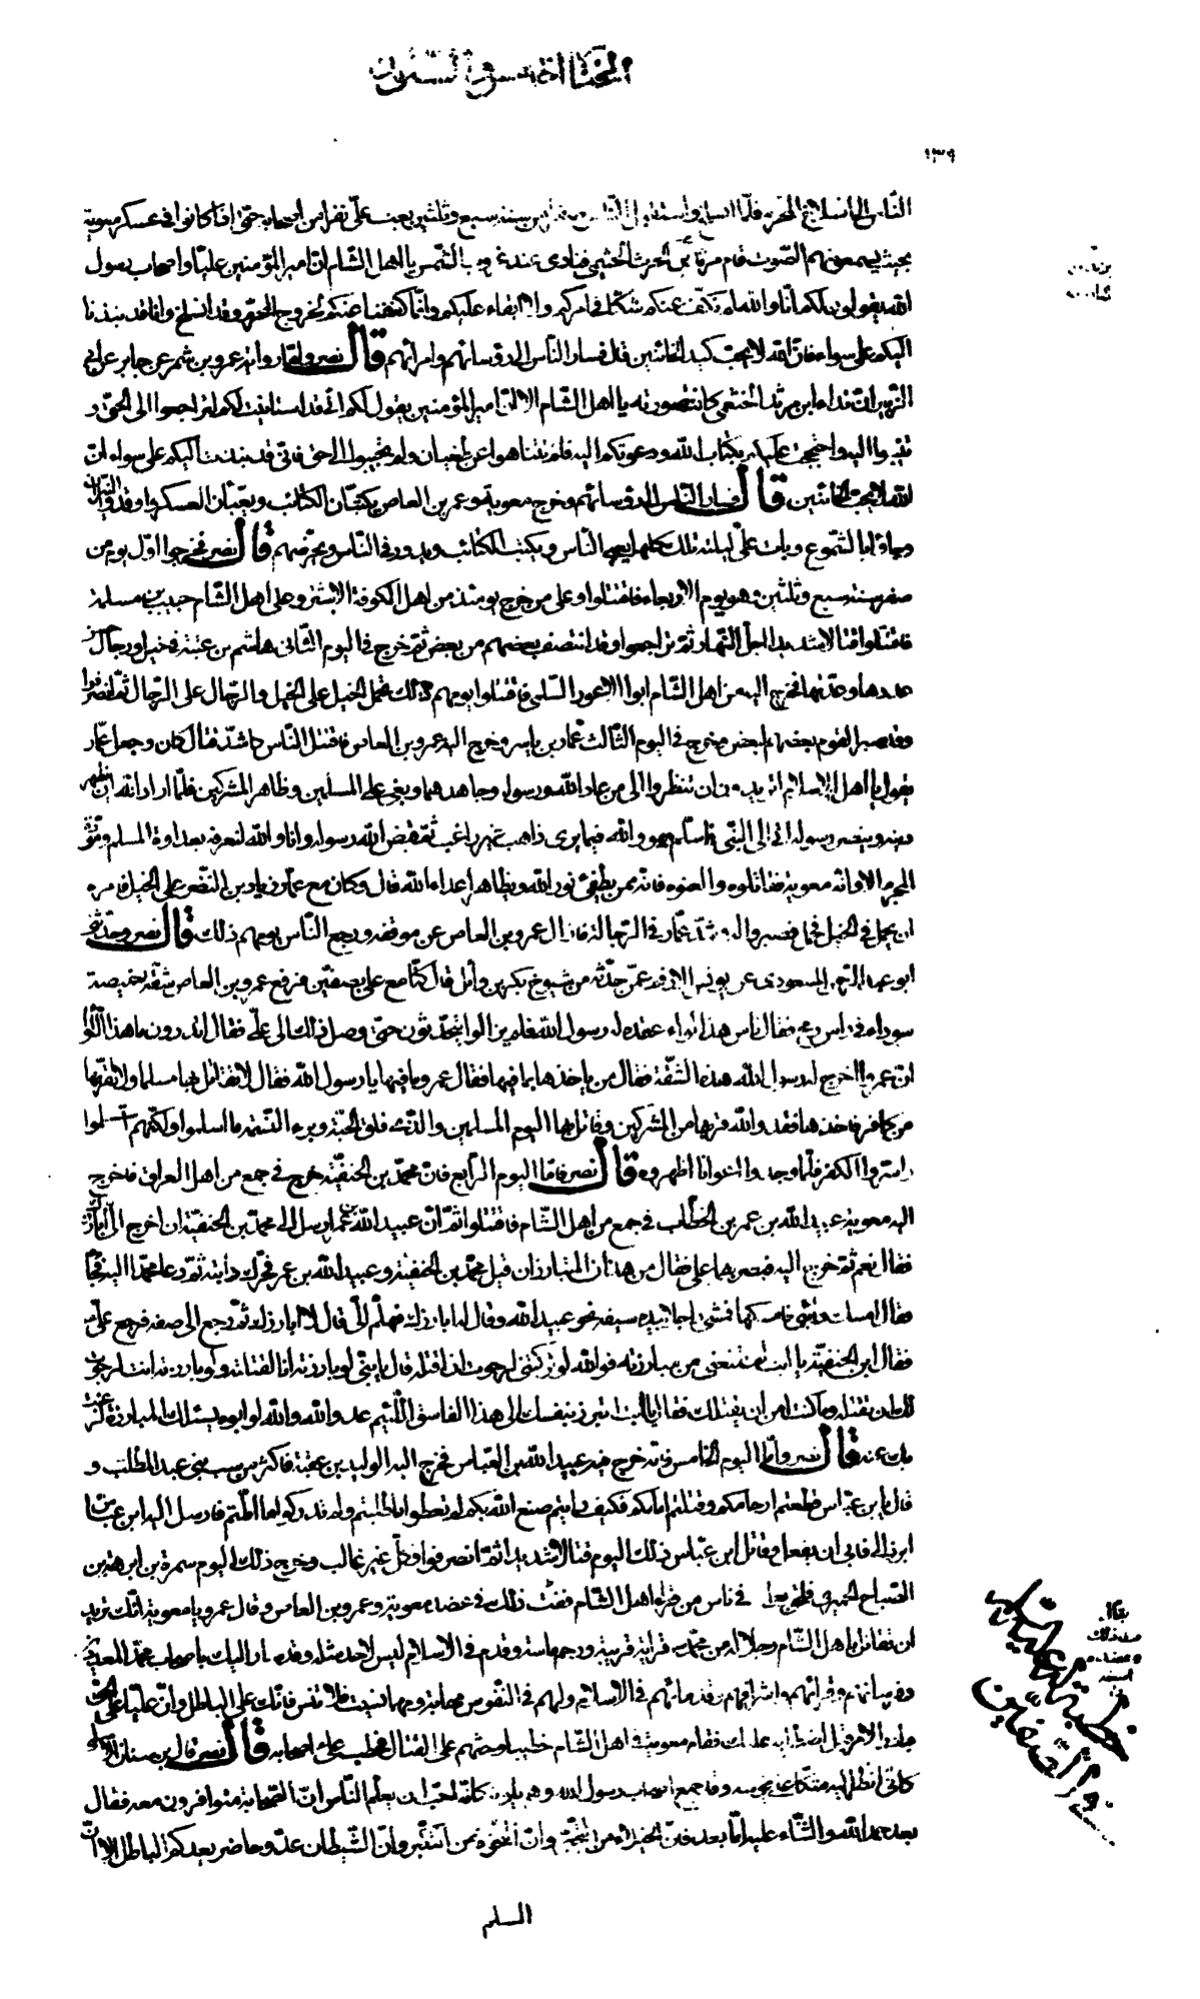 ١٣٩
الناس الى انسلاخ المحرم فلما انسلخ واستقبل الناس صفر من سنة سبع وثلثين بعث علي نفرا من اصحابه حتى اذا كانوا في عسكر معوية
بحيث يسمعونهم الصوت قام مرثد بن الحرث الجشمي فنادى عند غروب الشمس يا اهل الشام ان امير المؤمنين عليا واصحاب رسول
الله يقولون لكم انا والله لم نكف عنكم شكا في امركم ولا ابقاء عليكم وانما كففنا عنكم لخروج المحرم وقد انسلخ وانا قد نبذنا
اليكم على سواء فان الله لا يحب كيد الخائنين قال فسار الناس الى رؤسائهم وامرائهم قال نصر فاما رواية عمرو بن شمر عن جابر عن ابي
الزبير ان نداء ابن مرثد الخثعمي كانت صورته يا اهل الشام الا ان امير المؤمنين يقول لكم اني قد استانيت لكم لتراجعوا الى الحق و
تنيبوا اليه واحتججت عليكم بكتاب الله ودعوتكم اليه فلم تتناهوا عن طغيان ولم تجيبوا الى حق فاني قد نبذت اليكم على سواء ان
الله لا يحب الخائنين قال فسار الناس الى رؤسائهم وخرج معوية وعمرو بن العاص يكتبان الكتائب ويعبئان العسكر واوقدوا النيران
وجاؤا بالشموع وبات علي ليلته تلك كلها يعبي الناس ويكتب الكتائب ويدور في الناس ويحرضهم قال نصر فخرجوا اول يوم من
صفر سنة سبع وثلثين وهو يوم الاربعاء فاقتتلوا وعلى من خرج يومئذ من اهل الكوفة الاشتر وعلى اهل الشام حبيب بن مسلمة
فاقتتلوا قتالا شديدا جل النهار ثم تراجعوا وقد انتصف بعضهم من بعض ثم خرج في اليوم الثاني هاشم بن عتبة في خيل ورجال حسن
عددها وعدتها فخرج اليه من اهل الشام ابو الاعور السلمي فاقتتلوا يومهم ذلك تحمل الخيل على الخيل والرجال على الرجال ثم انصرفوا
وقد صبر القوم بعضهم لبعض وخرج في اليوم الثالث عمار بن ياسر وخرج اليه عمرو بن العاص فاقتتل الناس كاشد قتال كان وجعل عمار
يقول يا اهل الاسلام اتريدون ان تنظروا الى من عادى الله ورسوله وجاهدهما وبغى على المسلمين وظاهر المشركين فلما اراد الله ان يظهر
دينه وينصر رسوله اتى الى النبي فاسلم وهو والله فيما يرى راهب غير راغب ثم قبض الله رسوله وانا والله لنعرفه بعداوة المسلم ومودة
المجرم الا وانه معوية فقاتلوه والعنوه فانه ممن يطفئ نور الله ويظاهر اعداء الله قال وكان مع عمار زياد بن النضر على الخيل فامره
ان يحمل في الخيل فحمل فصبروا له وشد عمار في الرجالة فازال عمرو بن العاص عن موقفه ورجع الناس يومهم ذلك قال نصر وحدثني
ابو عبد الرحمن المسعودي عن يونس الارقم عمن حدثه من شيوخ بكر بن وائل قال كنا مع علي بصفين فرفع عمرو بن العاص شقة خميصة
سوداء في راس رمح فقال ناس هذا لواء عقده له رسول الله فلم يزالوا يتحدثون حتى وصل ذلك الى علي فقال اتدرون ما هذا اللواء
ان عمروا اخرج له رسول الله هذه الشقة فقال من ياخذها بما فيها فقال عمرو وما فيها يا رسول الله فقال لا تقاتل بها مسلما ولا تقربها
من كافر فاخذها فقد والله قربها من المشركين وقاتل بها اليوم المسلمين والذي فلق الحبة وبرء النسمة ما اسلموا ولكنهم استسلموا
واسروا الكفر فلما وجدوا اعوانا اظهروه قال نصر فاما اليوم الرابع فان محمد بن الحنفية خرج في جمع من اهل العراق فاخرج
اليه معوية عبيد الله بن عمر بن الخطاب في جمع من اهل الشام فاقتتلوا ثم ان عبيد الله بن عمر ارسل الى محمد بن الحنفية ان اخرج الي ابارزك
فقال نعم ثم خرج اليه فبصر بهما علي فقال من هذان المتبارزان قيل محمد بن الحنفية وعبيد الله بن عمر فحرك دابته ثم دعا محمدا اليه فجاءه
فقال امسك دابتي فامسكها فمشى راجلا بيده سيفه نحو عبيد الله وقال له ابارزك فهلم الي قال لا ابارزك ثم رجع الى صفه فرجع علي
فقال ابن الحنفية يا ابت لم تمنعني من مبارزته فوالله لو تركتني لرجوت ان اقتله قال يا بني لو بارزته انا لقتلته ولو بارزته انت لرجوت
لك ان تقتله وما كنت امن ان يقتلك فقال يا ابت اتبرز بنفسك الى هذا الفاسق اللئيم عدو الله والله لو ابوه يسئلك المبارزة لرغبت
بك عنه قال نصر واما اليوم الخامس فانه خرج فيه عبد الله بن العباس فخرج اليه الوليد بن عقبة فاكثر من سب بني عبد المطلب و
قال يا بن عباس قطعتم ارحامكم وقتلتم امامكم فكيف رايتم صنع الله بكم لم تعطوا ما طلبتم ولم تدركوا ما املتم فارسل اليه ابن عباس ان
ابرز الي فابى ان يفعل وقاتل ابن عباس ذلك اليوم قتالا شديدا ثم انصرفوا وكل غير غالب وخرج ذلك اليوم سمرة بن ابرهة بن
الصباح الحميري فلحق بعلي في ناس من قراء اهل الشام ففت ذلك في عضد معوية وعمرو بن العاص وقال عمرو يا معوية انك تريد
ان تقاتل باهل الشام رجلا له من محمد قرابة قريبة ورحم ماسة وقدم في الاسلام ليس لاحد مثله وقد سار اليك باصحاب محمد المعدودين
وفرسانهم وقرائهم واشرافهم وقدمائهم في الاسلام ولهم في النفوس مهابة ومهما نسيت فلا تنس فانك على الباطل وان عليا على الحق
فقام معوية في اهل الشام خطيبا وحثهم على القتال فخطب علي اصحابه قال نصر قال بن سنان الاسلمي
كاني انظر اليه متكئا على قوسه وقد جمع اصحاب رسول الله وهم يلونه كانه احب ان يعلم الناس ان الصحابة متوافرون معه فقال
بعد حمد الله والثناء عليه اما بعد فان الخيلاء من التجبر وان النخوة من التكبر وان الشيطان عدو حاضر يعدكم الباطل الا ان
المسلم
خطبة علي
في الصفين